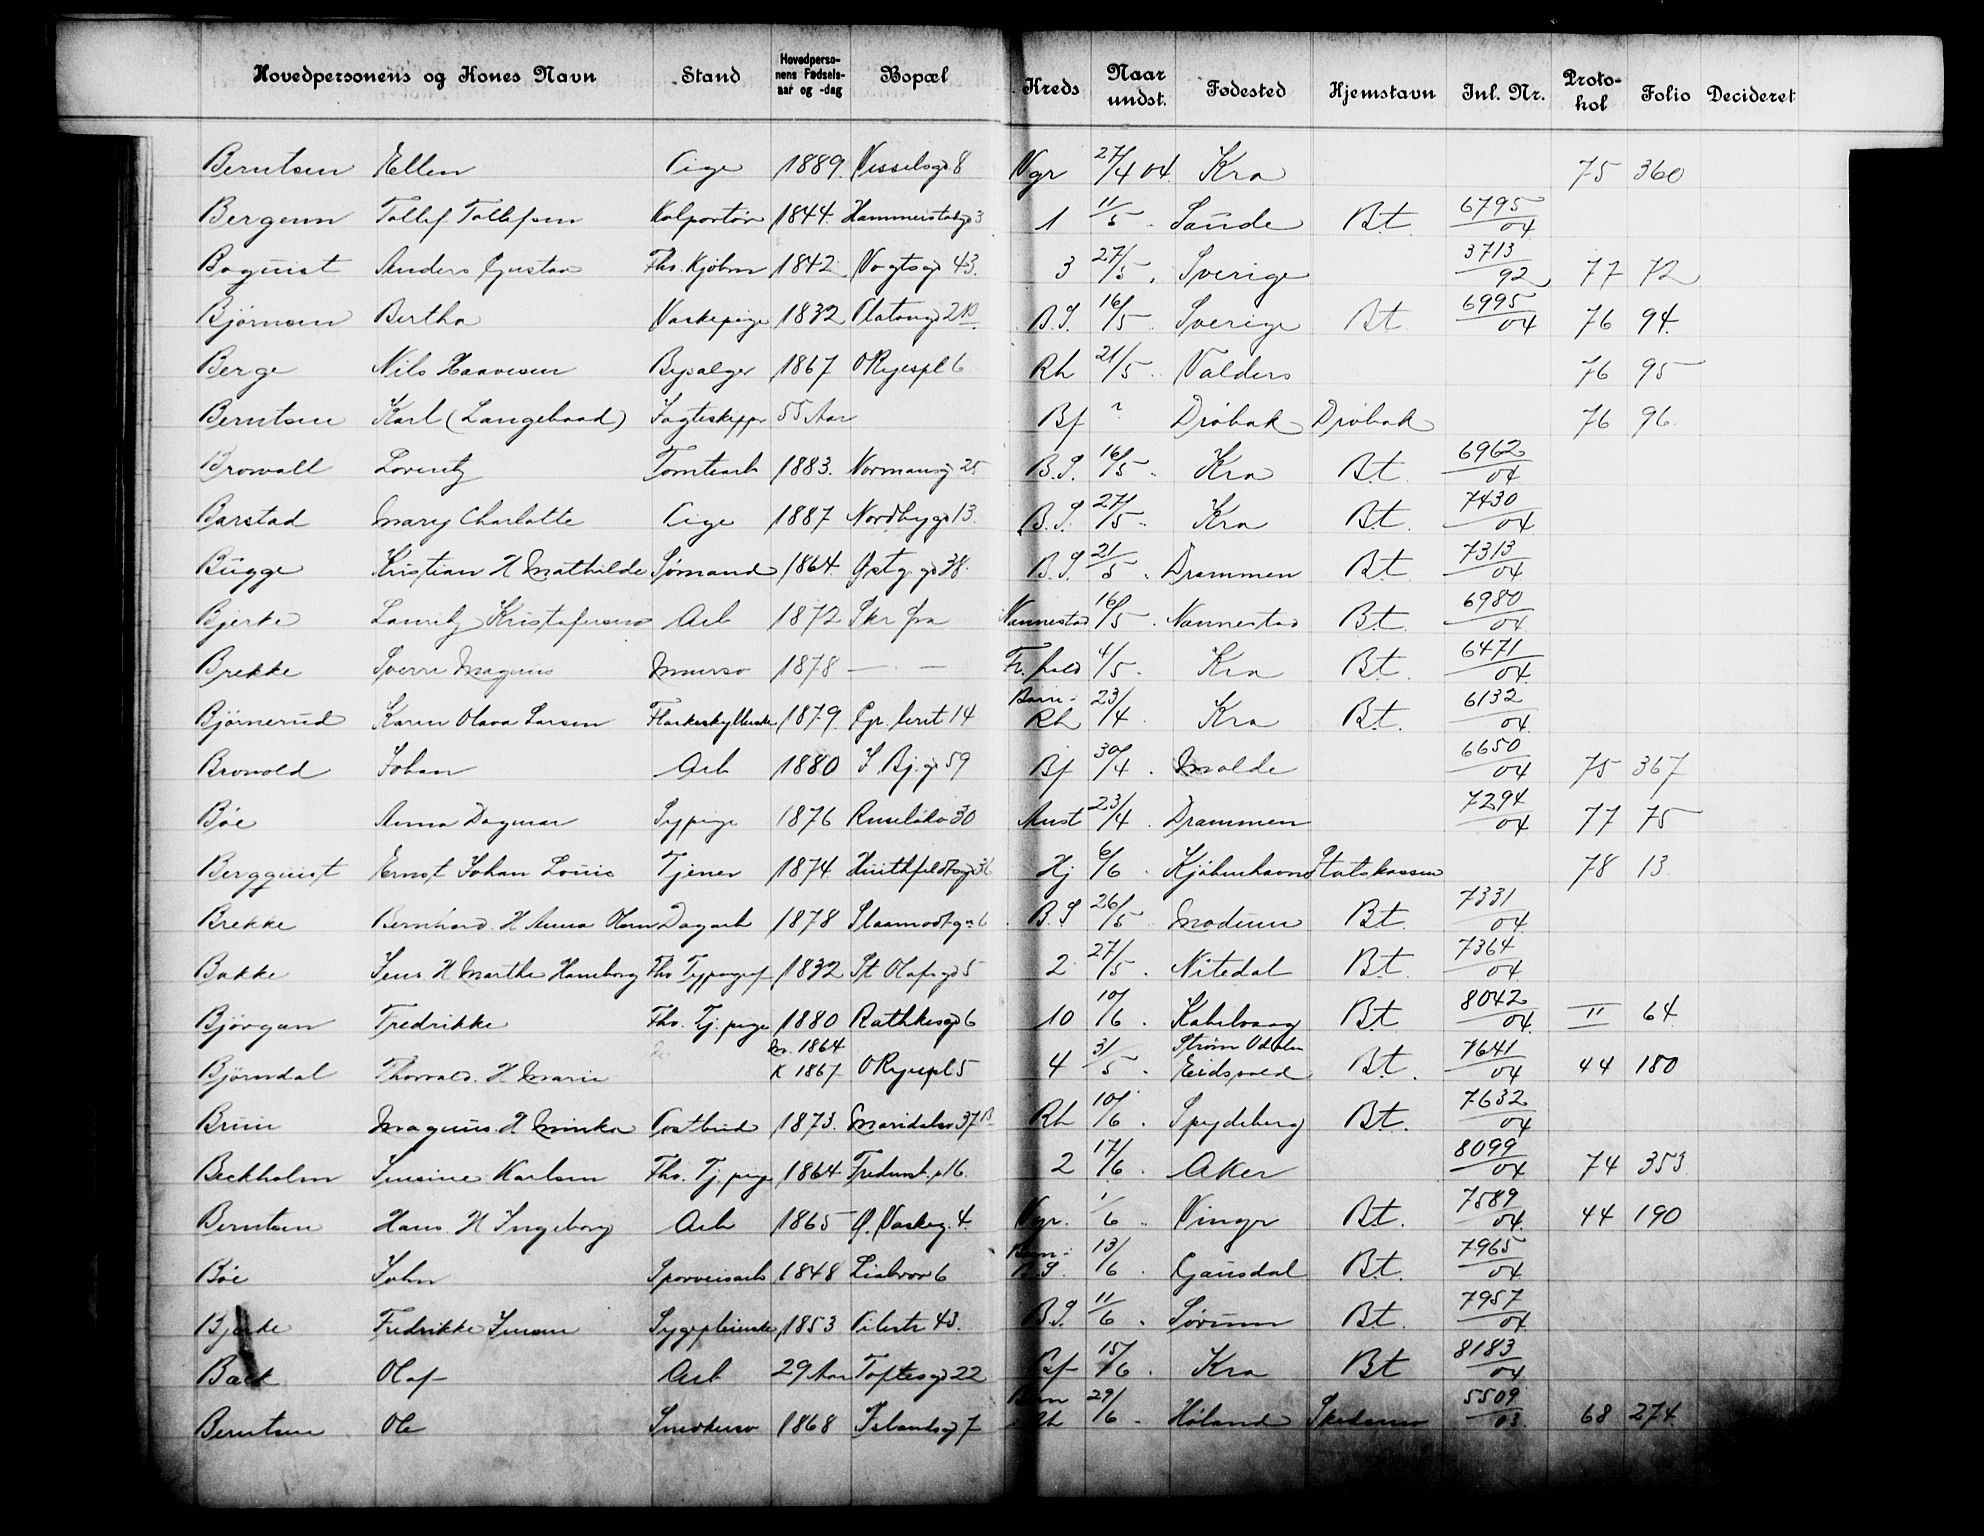 Hovedpersonens og Kones Navn Stand Hovedpersonens Fødselsaar og -dag Bopæl Kreds Naar undst. Fødested Hjemstavn Inl. Nr. Protokol Folio Decideret
Berntsen Ellen Pige 1889. Wesselsgd 8 Vgr 27/4 04. Kra 75 360
Bergum Tollef Tollefsen Kolportør 1844. Hammerstadgd 3 1 11/5 Sande Bt. 6795/04
Boquist Anders Gustav Fhv. Kjøbm 1842 Vogtsgd 43. 3 27/5 Sverige 3713/92 77 72
Bjørnsen Bertha Vaskepige 1832 Platousgd 2 B B.S. 16/5 Sverige Bt 6995/04 76 94.
Berge Nils Haavesen Bysælger 1867 O Ryespl 6 Rh 21/5 Valders 76 95
Berntsen Karl (Langebaad) Jagteskippr 55 Aar Bf ? Drøbak Drøbak 76 96.
Browall Lorentz Tomtearb 1883. Normansgd 25 B.S. 16/5 Kra Bt. 6962/04
Barstad Mary Charlotte Pige 1887 Nordbygd 13. B.S. 27/5 Kra Bt. 7430/04
Bugge Kristian H Mathilde Sømand 1864. Østg. gd 38. B.S. 21/5 Drammen Bt. 7313/04
Bjerke Lauritz Kristofersen Arb 1872 Skr fra Nannestad 16/5 Nannestad Bt. 6980/04
Brekke Sverre Magnus Murersv 1878 — . — Fr. hald 4/5 Kra Bt. 6471/04
Bjørnerud Karen Olava Larsen Flaskeskyllerske 1879. Gr. leret 14 Barn: Rh 23/4 Kra Bt. 6132/04
Brovold Johan Arb 1880 S Bj. gd 59 Bf 30/4 Molde 6650/04 75 367
Bøe Anna Dagmar Sypige 1876 Ruseløkv 30 Aust 23/4 Drammen 7294/04 77 75
Bergquist Ernst Johan Louis Tjener 1874. Huitfeldtsgd 36 Hj 6/6 Kjøbenhavn Statskassen 78 13.
Brekke Bernhard H Anna Dagarb 1878 Staamodtgd 6 B.S 26/5 Modum Bt. 7331/04
Bakke Jens H Marthe Fhv Typograf 1832 St Olafsgd 5 2 27/5 Nitedal Bt. 7364/04
Bjørgan Fredrikke Fhv. Tj. pige 1880 Rathkesgd 6 10 10/6 Kabelvaag Bt 8042/04 II 64.
Bjørndal Thorvald. H Marie M. 1864 K 1867 O Ryespl 5 4 31/5 Strøm Odalen Eidsvold Bt. 7641/04 44 180
Bruu Magnus. H Minka Postbud 1873. Maridalsv 37 B Rh 10/6 Spydeberg Bt. 7632/04
Beckholm Jensine Karlsen Fhv. Tj. pige 1864 16. 2 17/6 Aker 8099/04 74 353.
Berntsen Hans. H Ingeborg Arb 1865 Ø. Vaskeg. 4. Vgr. 1/6 Vinger Bt. 7589/04 44 190
Bøe John Sporveisarb 1848 Liabrov 6 Barn: B.S. 13/6 Gausdal Bt. 7965/04
Bjerke Fredrikke Jensen Sygepleierske 1853 Pilestr 43. B.S. 11/6 Sørum Bt. 7957/04
Back Olaf Arb 29 Aar Toftesgd 22 Bf 15/6 Kra Bt 8183/04
Berntsen Ole Snedkersv 1868 Islandsgd 7 Barn Rh 29/6 Høland Skedsmo 5509/03 68 274.